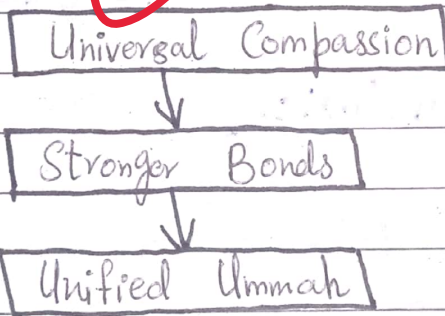 Universal Compassion
Stronger Bonds
Unified Ummah